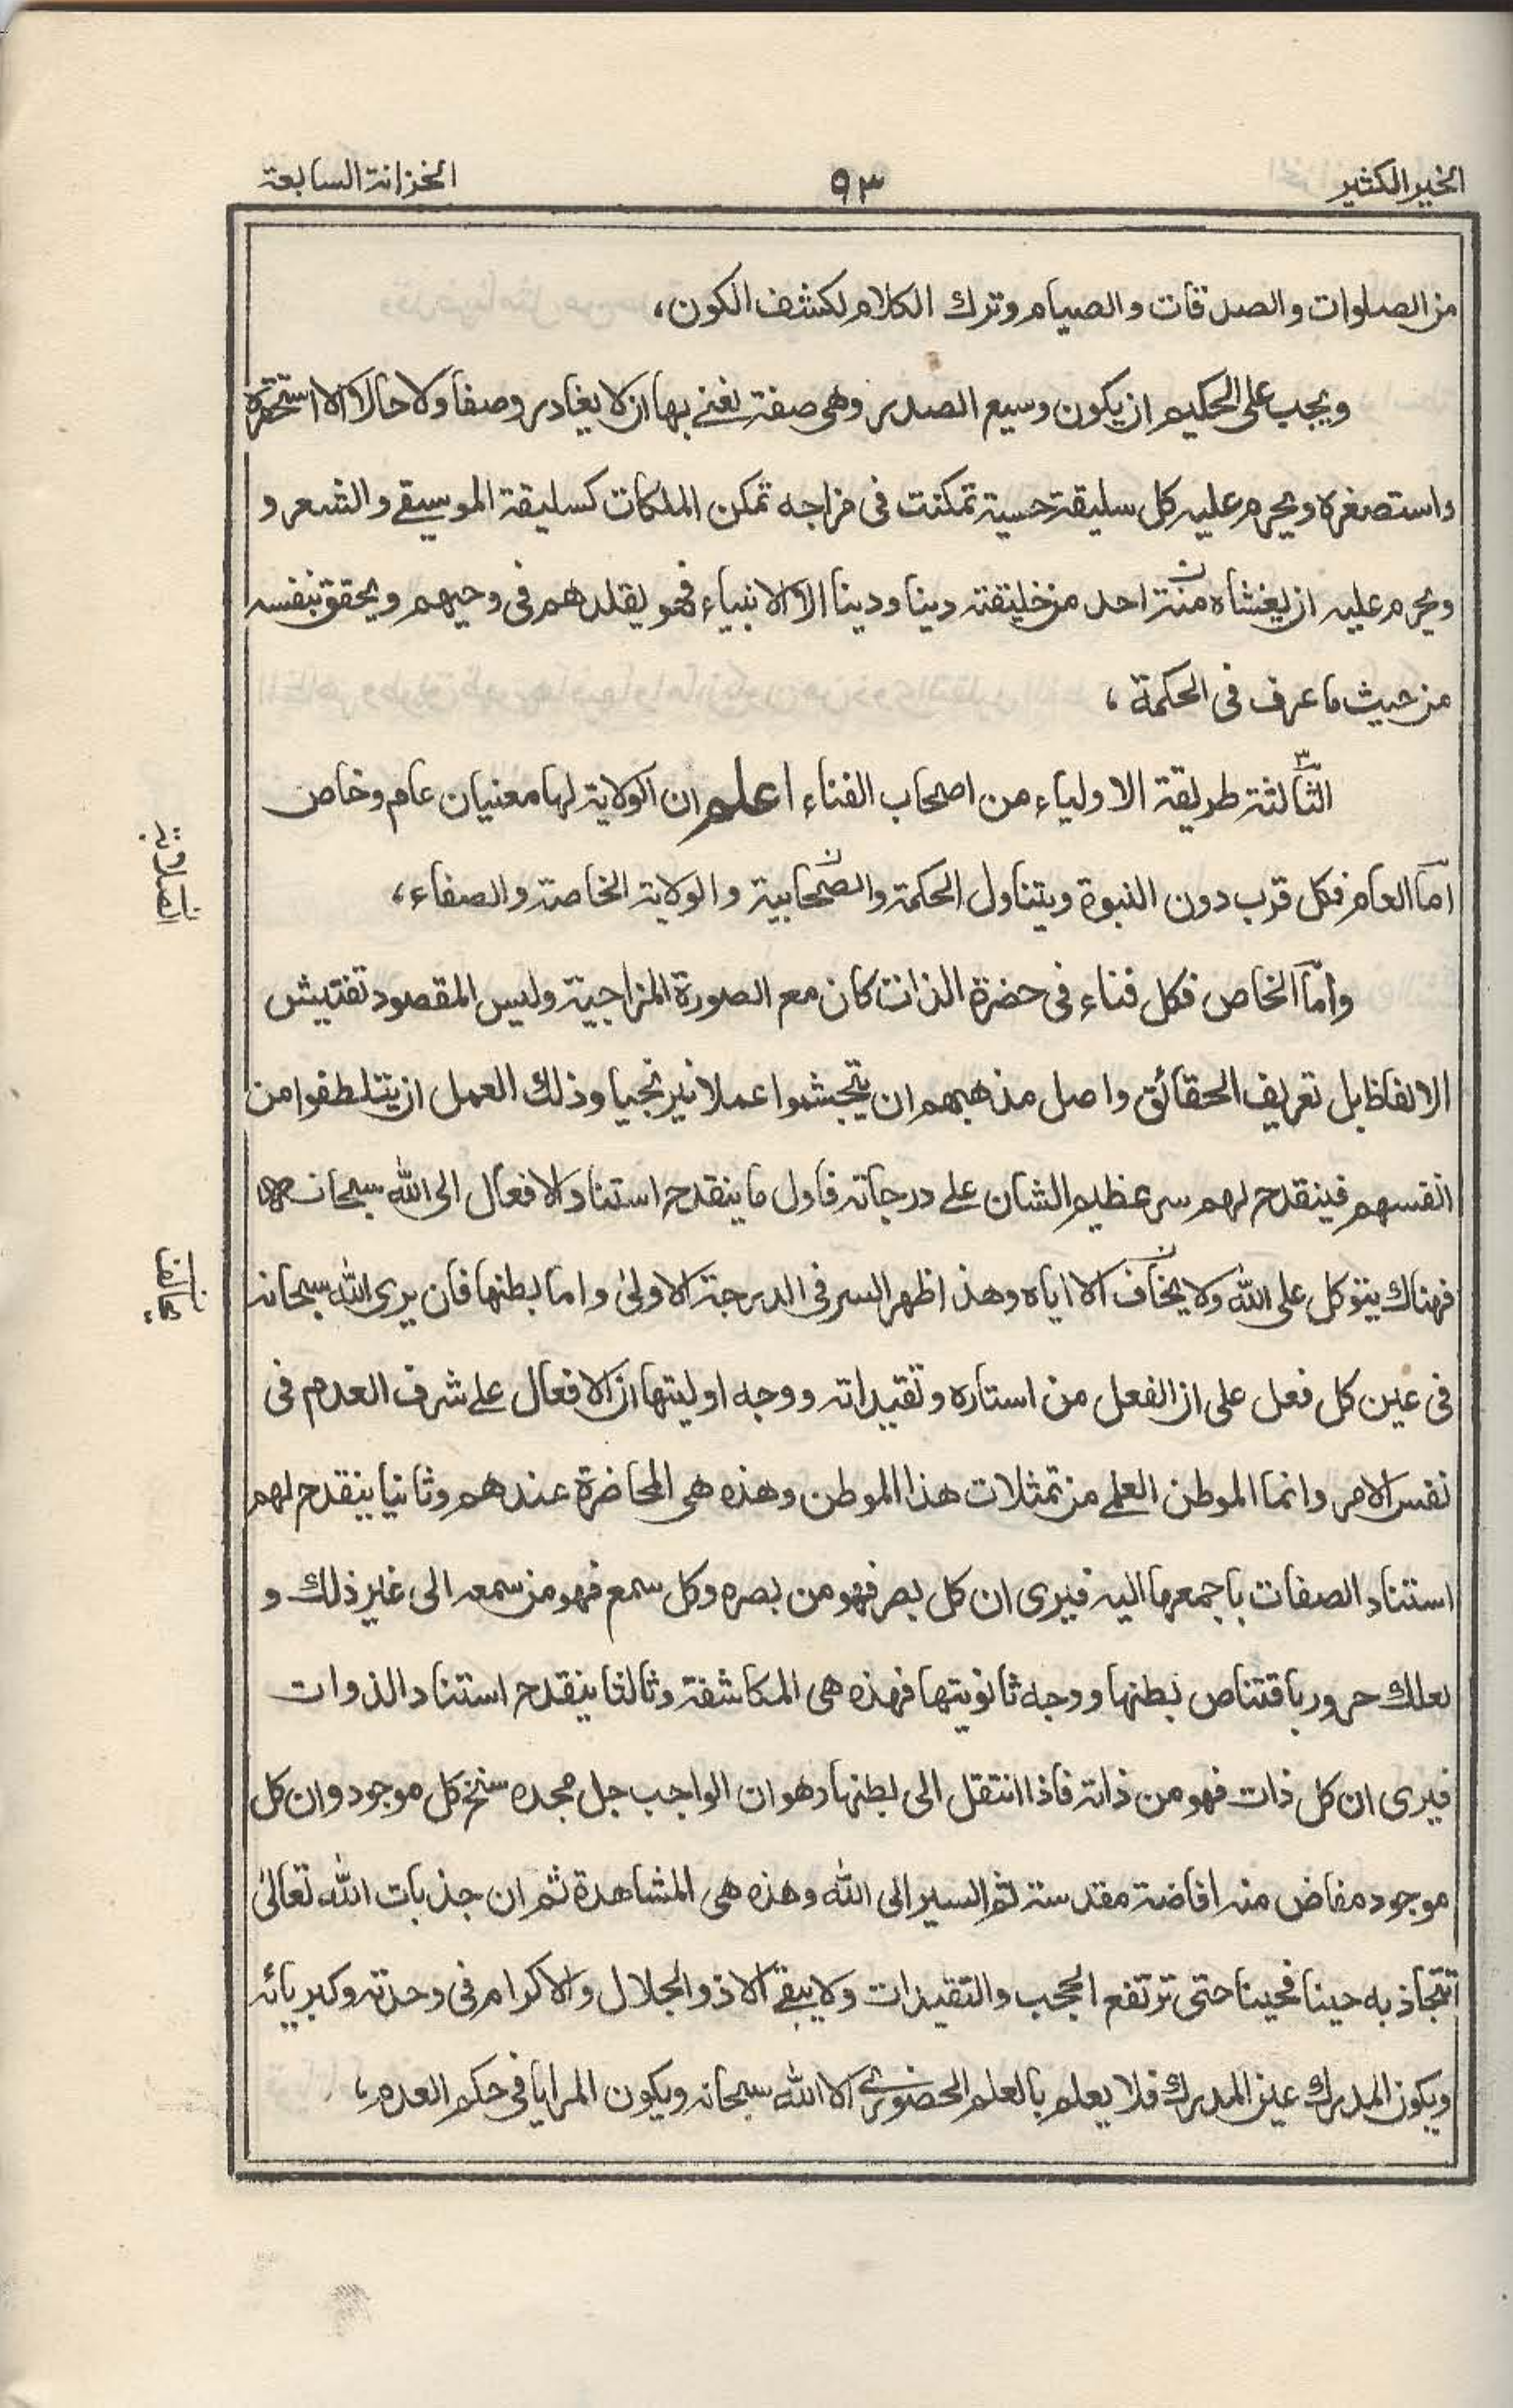 الخير الكثير
٩٣
الخزانة السابعة
من الصلوات والصدقات والصيام وترك الكلام لكشف الكون،
ويجب على الحكيم ان يكون وسيع الصدر وهى صفة نغنے بها ان لا يغادر وصفا ولا حالا الا استحقره
واستصغره ويحرم عليه كل سليقة حسية تمكنت فى مزاجه تمكن الملكات كسليقة الموسيقے والشعر و
ويحرم عليه ان يغشاه منة احد من خليقته دينا ودينا الا الانبياء فهو يقلدهم فى وحيهم ويحقق بنفسه
من حيث ما عرف فى الحكمة،
الثّالثة طريقة الاولياء من اصحاب الفناء اعلم ان الولاية لها معنيان عام وخاص
امّا العام فكل قرب دون النبوة ويتناول الحكمة والصّحابية والولاية الخاصة والصفاء،
وامّا الخاص فكل فناء فى حضرة الذات كان مع الصورة المزاجية وليس المقصود تفتيش
الالفاظ بل تعريف الحقائق واصل مذهبهم ان يتجشموا عملا نيرنجيا وذلك العمل ان يتلطفوا من
انفسهم فينقدح لهم سر عظيم الشان علے درجاته فاول ما ينقدح استناد الافعال الى الله سبحانه
فهناك يتوكل على الله ولا يخاف الا اياه وهذا ظهر السر فى الدرجة الاولىٰ واما بطنها فان يرى الله سبحانه
فى عين كل فعل على ان الفعل من استاره وتقيداته ووجه اوليتها ان الافعال علے شرف العدم فى
نفس الامر وانما الموطن العلمے من تمثلات هذا الموطن وهذه هى المحاضرة عندهم وثانيا ينقدح لهم
استناد الصفات باجمعها اليه فيرى ان كل بصر فهو من بصره وكل سمع فهو من سمعه الى غير ذلك و
لعلك حرور باقتناص بطنها ووجه ثانويتها فهذه هى المكاشفة وثالثا ينقدح استناد الذوات
فيرى ان كل ذات فهو من ذاته فاذا انتقل الى بطنها وهو ان الواجب جل مجده سنخ كل موجود وان كل
موجود مفاض منه افاضة مقدسة تم السير الى الله وهذه هى المشاهدة ثم ان جذبات الله تعالىٰ
تتجاذبه حينا فحينا حتى ترتفع الحجب والتقيدات ولا يبقے الا ذو الجلال والاكرام فى وحدته وكبريائه
ويكون المدرِك عين المدرَك فلا يعلم بالعلم الحضورے الا الله سبحانه ويكون المرايا فى حكم العدم،